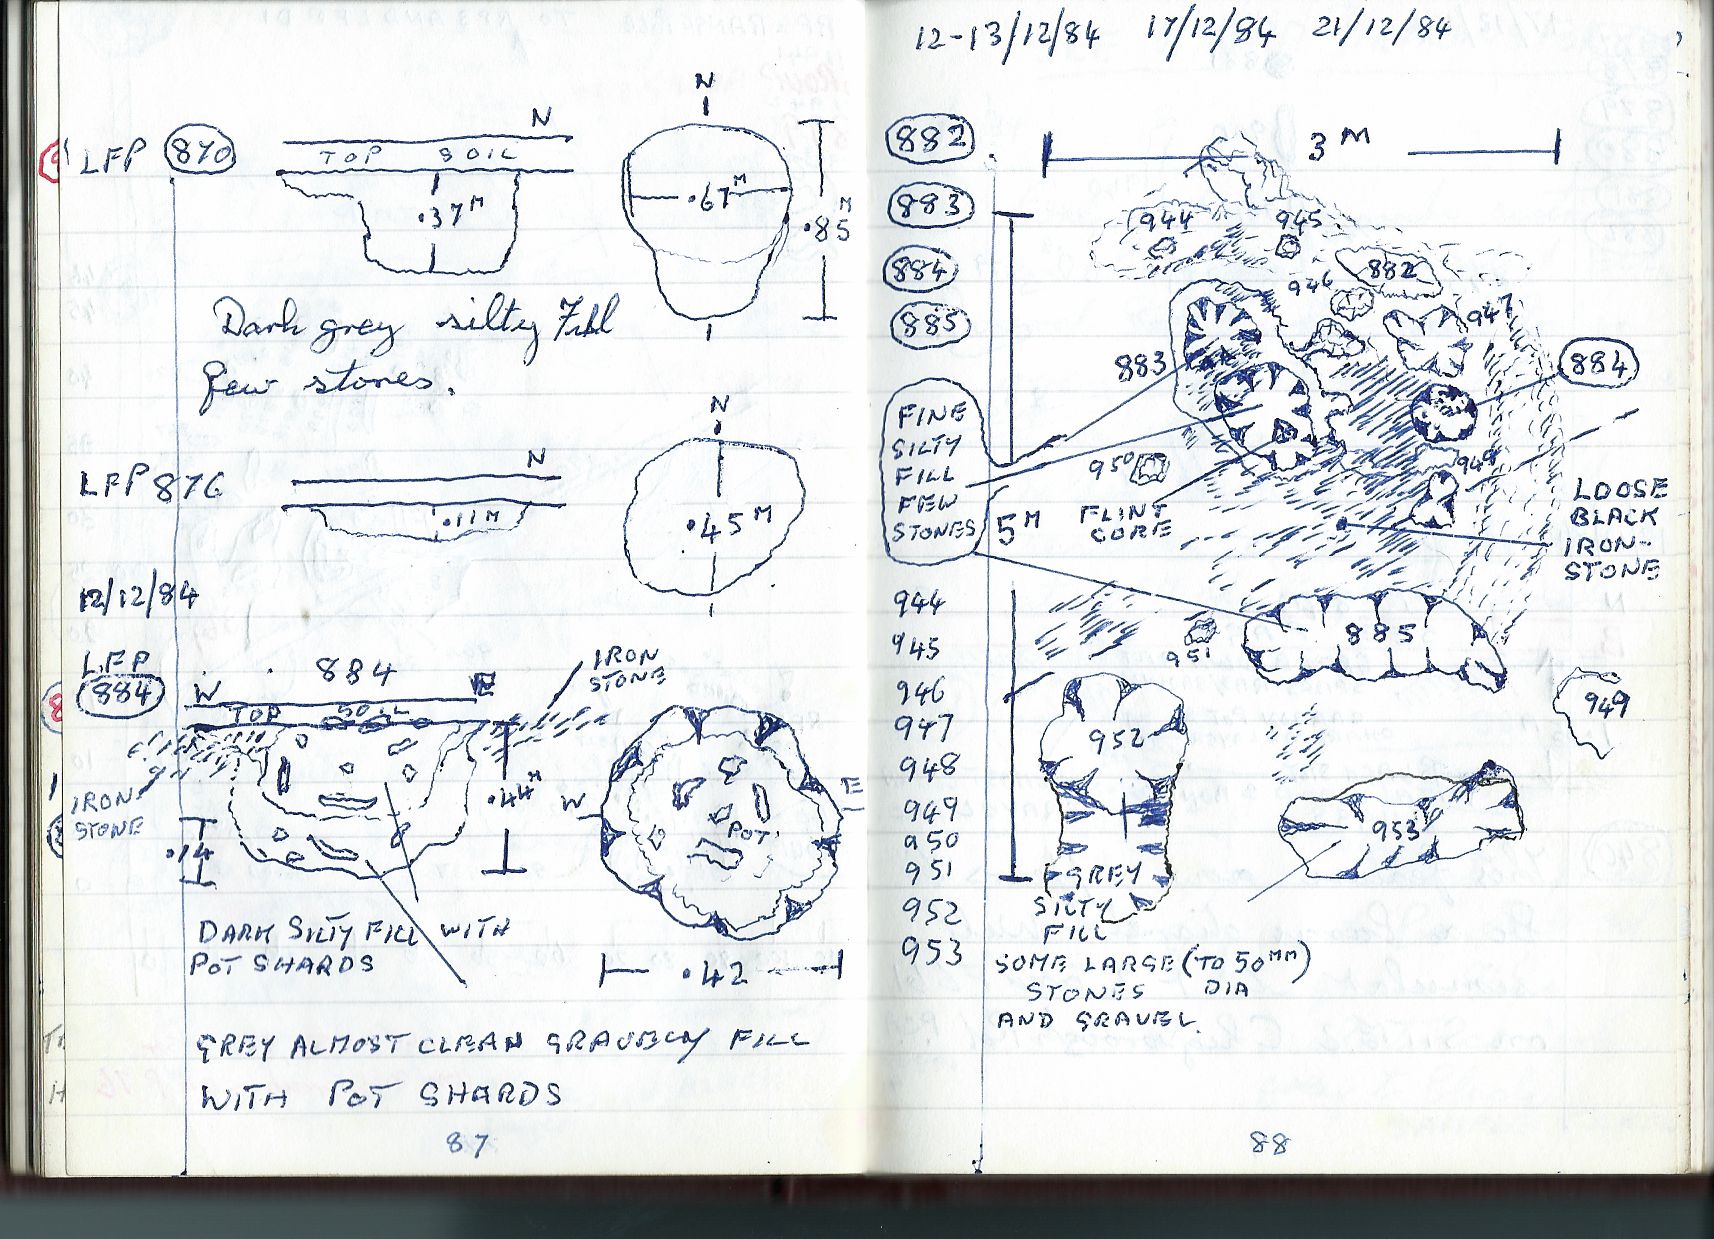 N
LFP 870
TOP SOIL
.37M
N
.67M
.85M
Dark grey silty Fill
few stones.
LFP 876
N
.11M
N
.45M
12/12/84
LFP
884
884
W E
TOP SOIL
IRON
STONE
IRON
STONE
.44M
.14
W E
POT
.42
DARK SILTY FILL WITH
POT SHARDS
GREY ALMOST CLEAN GRAVELLY FILL
WITH POT SHARDS
87
12-13/12/84 17/12/84 21/12/84
882
883
884
885
3M
944
945
882
946
947
883
884
FINE
SILTY
FILL
FEW
STONES
5M
950
FLINT
CORE
949
LOOSE
BLACK
IRON-
STONE
885
951
949
952
953
GREY
SILTY
FILL
944
945
946
947
948
949
950
951
952
953
SOME LARGE (TO 50MM)
STONES DIA
AND GRAVEL.
88